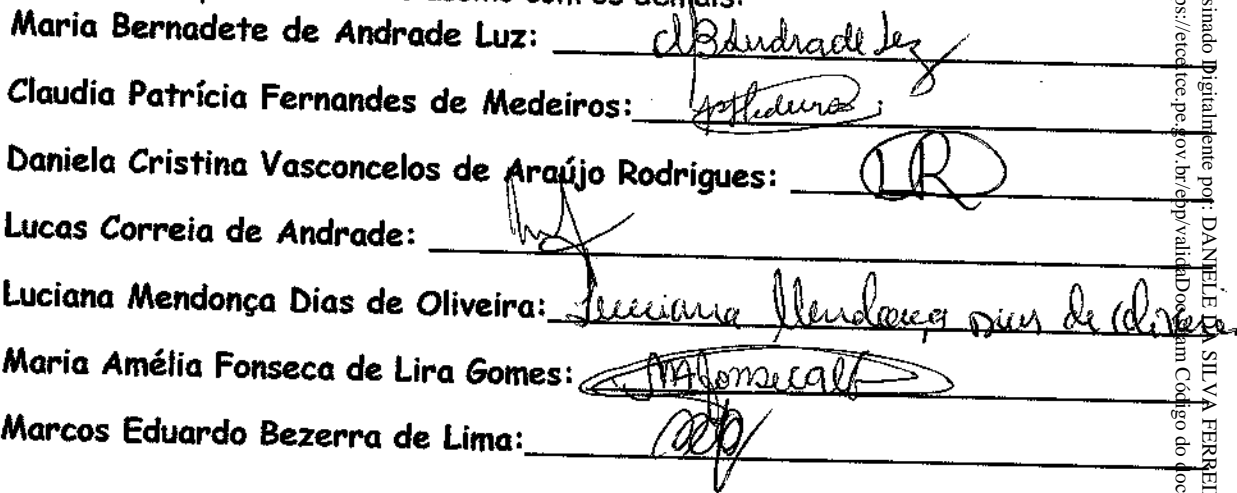 assino com os demais.
Maria Bernadete de Andrade Luz: MBAndrade Luz
Claudia Patrícia Fernandes de Medeiros:
Daniela Cristina Vasconcelos de Araújo Rodrigues: DR
Lucas Correia de Andrade:
Luciana Mendonça Dias de Oliveira: Luciana Mendonça Dias de Oliveira
Maria Amélia Fonseca de Lira Gomes: MAfonsecalf
Marcos Eduardo Bezerra de Lima:
sinado Digitalmente por: DANIELE DA SILVA FERREI
ps://etce.tce.pe.gov.br/epp/validaDoc.seam Código do doc